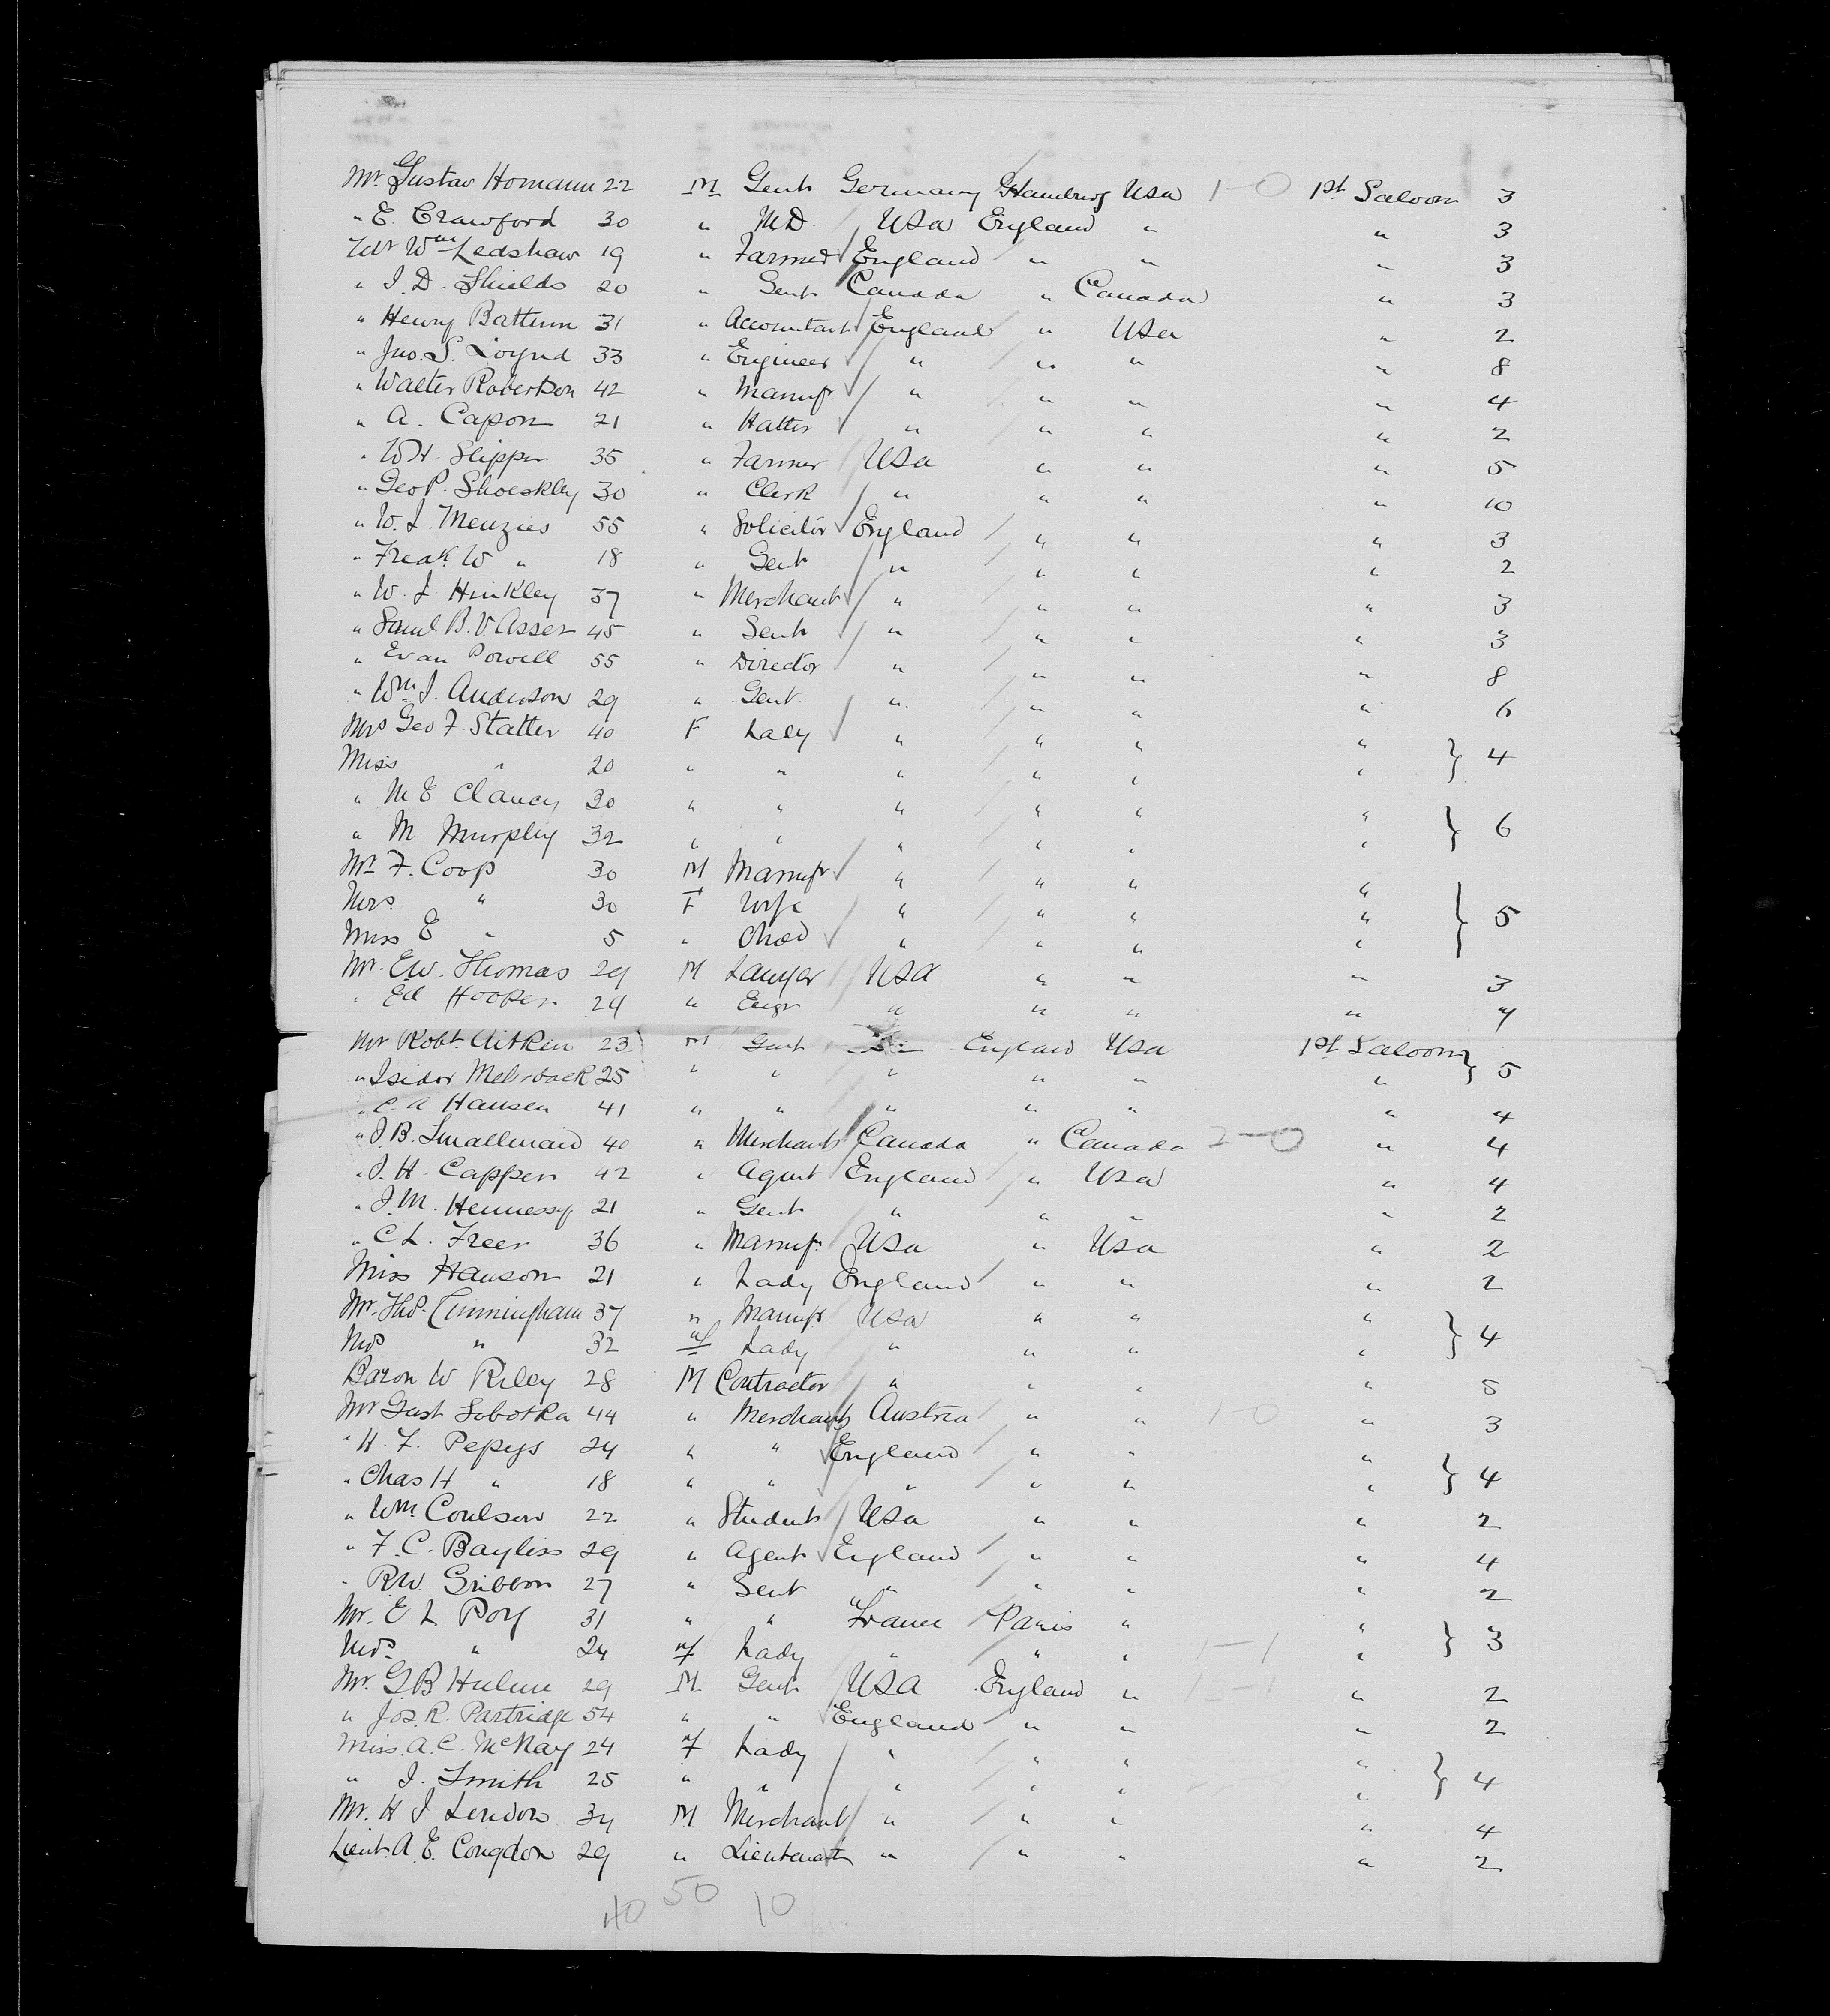 Mr. Gustav Homann 22 M Gent Germany Hamburg USA 1-0 1st Saloon 3
" E. Crawford 30 " M.D. USA England " " 3
Mr Wm Ledshaw 19 " Farmer England " " " 3
" J. D. Shields 20 " Gent Canada " Canada " 3
" Henry Battum 31 " Accountant England " USA " 2
" Jno. S. Loynd 33 " Engineer " " " " 8
" Walter Robertson 42 " Manufr. " " " " 4
" A. Capon 21 " Hatter " " " " 2
" W.H. Slipper 35 " Farmer USA " " " 5
" Geo P. 30 " Clerk " " " " 10
" W. J. Menzies 55 " Solicitor England " " " 3
" Fredk. W " 18 " Gent " " " " 2
" W. J. Hinkley 37 " Merchant " " " " 3
" Saml B. V. Asser 45 " Gent " " " " 3
" Evan Powell 55 " Director " " " " 8
" Wm J. Anderson 29 " Gent. " " " " 6
Mrs Geo F. Statter 40 F Lady " " " " } 4
Miss " 20 " " " " " "
" M E Clancy 30 " " " " " " } 6
" M Murphy 32 " " " " " "
Mr F. Coop 30 M Manufr " " " " } 5
Mrs. " 30 F Wife " " " "
Miss E " 5 " Child " " " "
Mr. E.W. Thomas 29 M Lawyer USA " " " 3
" Ed Hooper 24 " Engr " " " " 7
Mr Robt. Aitken 23 M Gent England USA 1st Saloon } 5
" Isidor 25 " " " " " "
" C. A Hansen 41 " " " " " " 4
" J.B. Smallmaid 40 " Merchant Canada " Canada 2-0 " 4
" J. H. Capper 42 " Agent England " USA " 4
" J. M. Hennessy 21 " Gent " " " " 2
" C L. Freer 36 " Manufr. USA " USA " 2
Miss Hanson 21 " Lady England " " " 2
Mr. Thos. Cunningham 37 " Manufr USA " " " } 4
Mrs " 32 f Lady " " " "
Baron W Riley 28 M Contractor " " " " 5
Mr Gust Sobotka 44 " Merchant Austria " " 1-0 " 3
" H. F. Pepys 24 " " England " " " } 4
" Chas H " 18 " " " " " "
" Wm. Coulson 22 " Student USA " " " 2
" F. C. Bayliss 29 " Agent England " " " 4
" R.W. Gribbon 27 " Gent " " " " 2
Mr. E L Roy 31 " " France Paris " " } 3
Mrs. " 24 f Lady " " " 1-1 "
Mr. G B Hulme 29 M. Gent USA England " 13-1 " 2
" Jos. R. Partridge 54 " " England " " " 2
Miss. A. C. McKay 24 f Lady " " " " } 4
" J. Smith 25 " " " " " "
Mr. H J Lendon 34 M Merchant " " " " 4
Lieut. A. E. Congdon 29 " Lieutenant " " " " 2
40 50 10